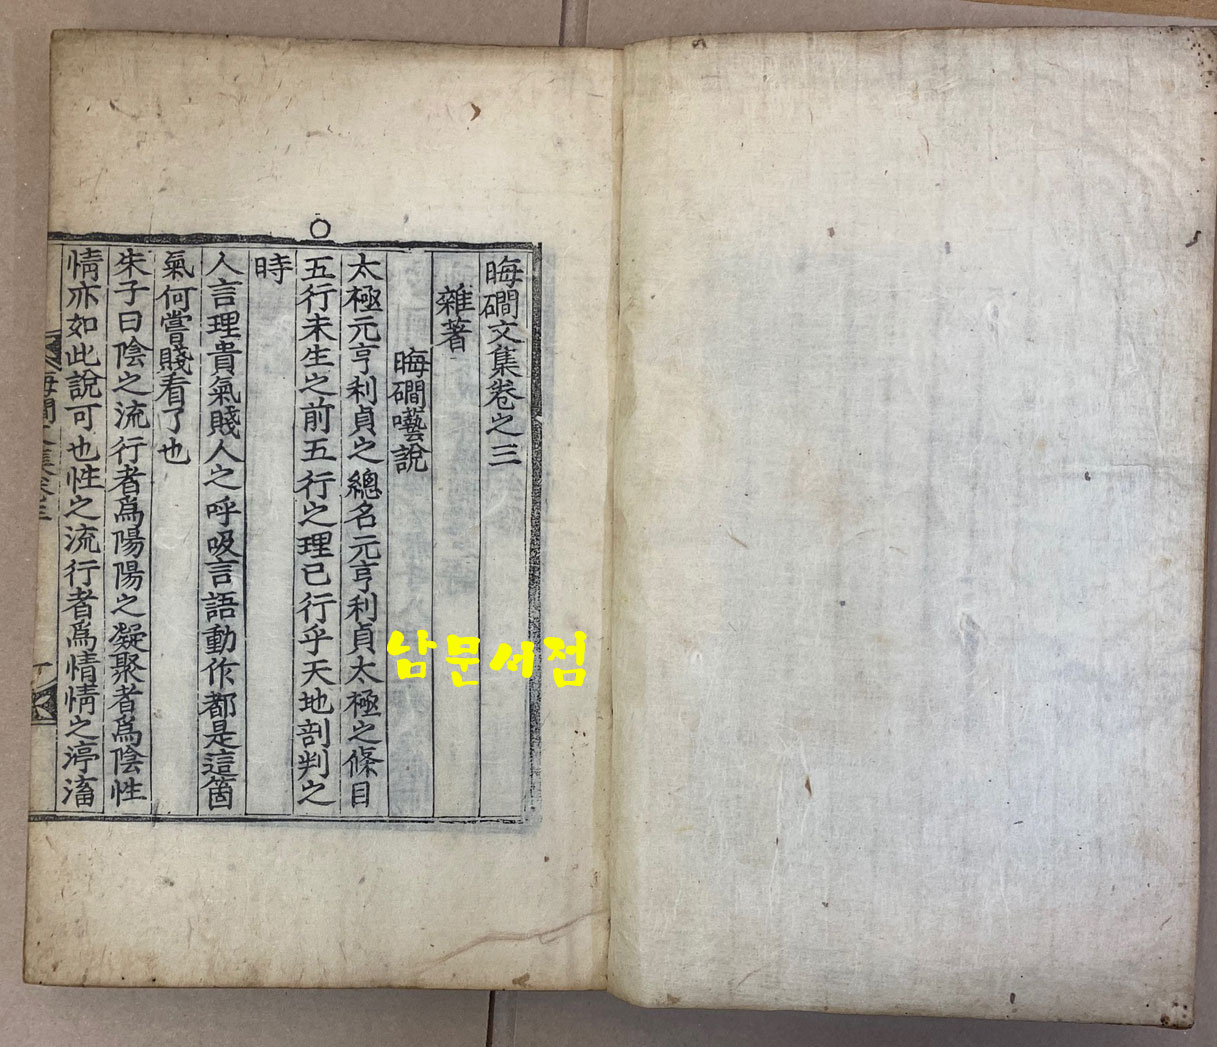 晦磵文集卷之三
雜著
晦磵囈說
太極元亨利貞之總名元亨利貞太極之條目
五行未生之前五行之理已行乎天地剖判之
時
人言理貴氣賤人之呼吸言語動作都是這箇
氣何嘗賤看了也
朱子曰陰之流行者爲陽陽之凝聚者爲陰性
情亦如此說可也性之流行者爲情情之渟滀
남문서점